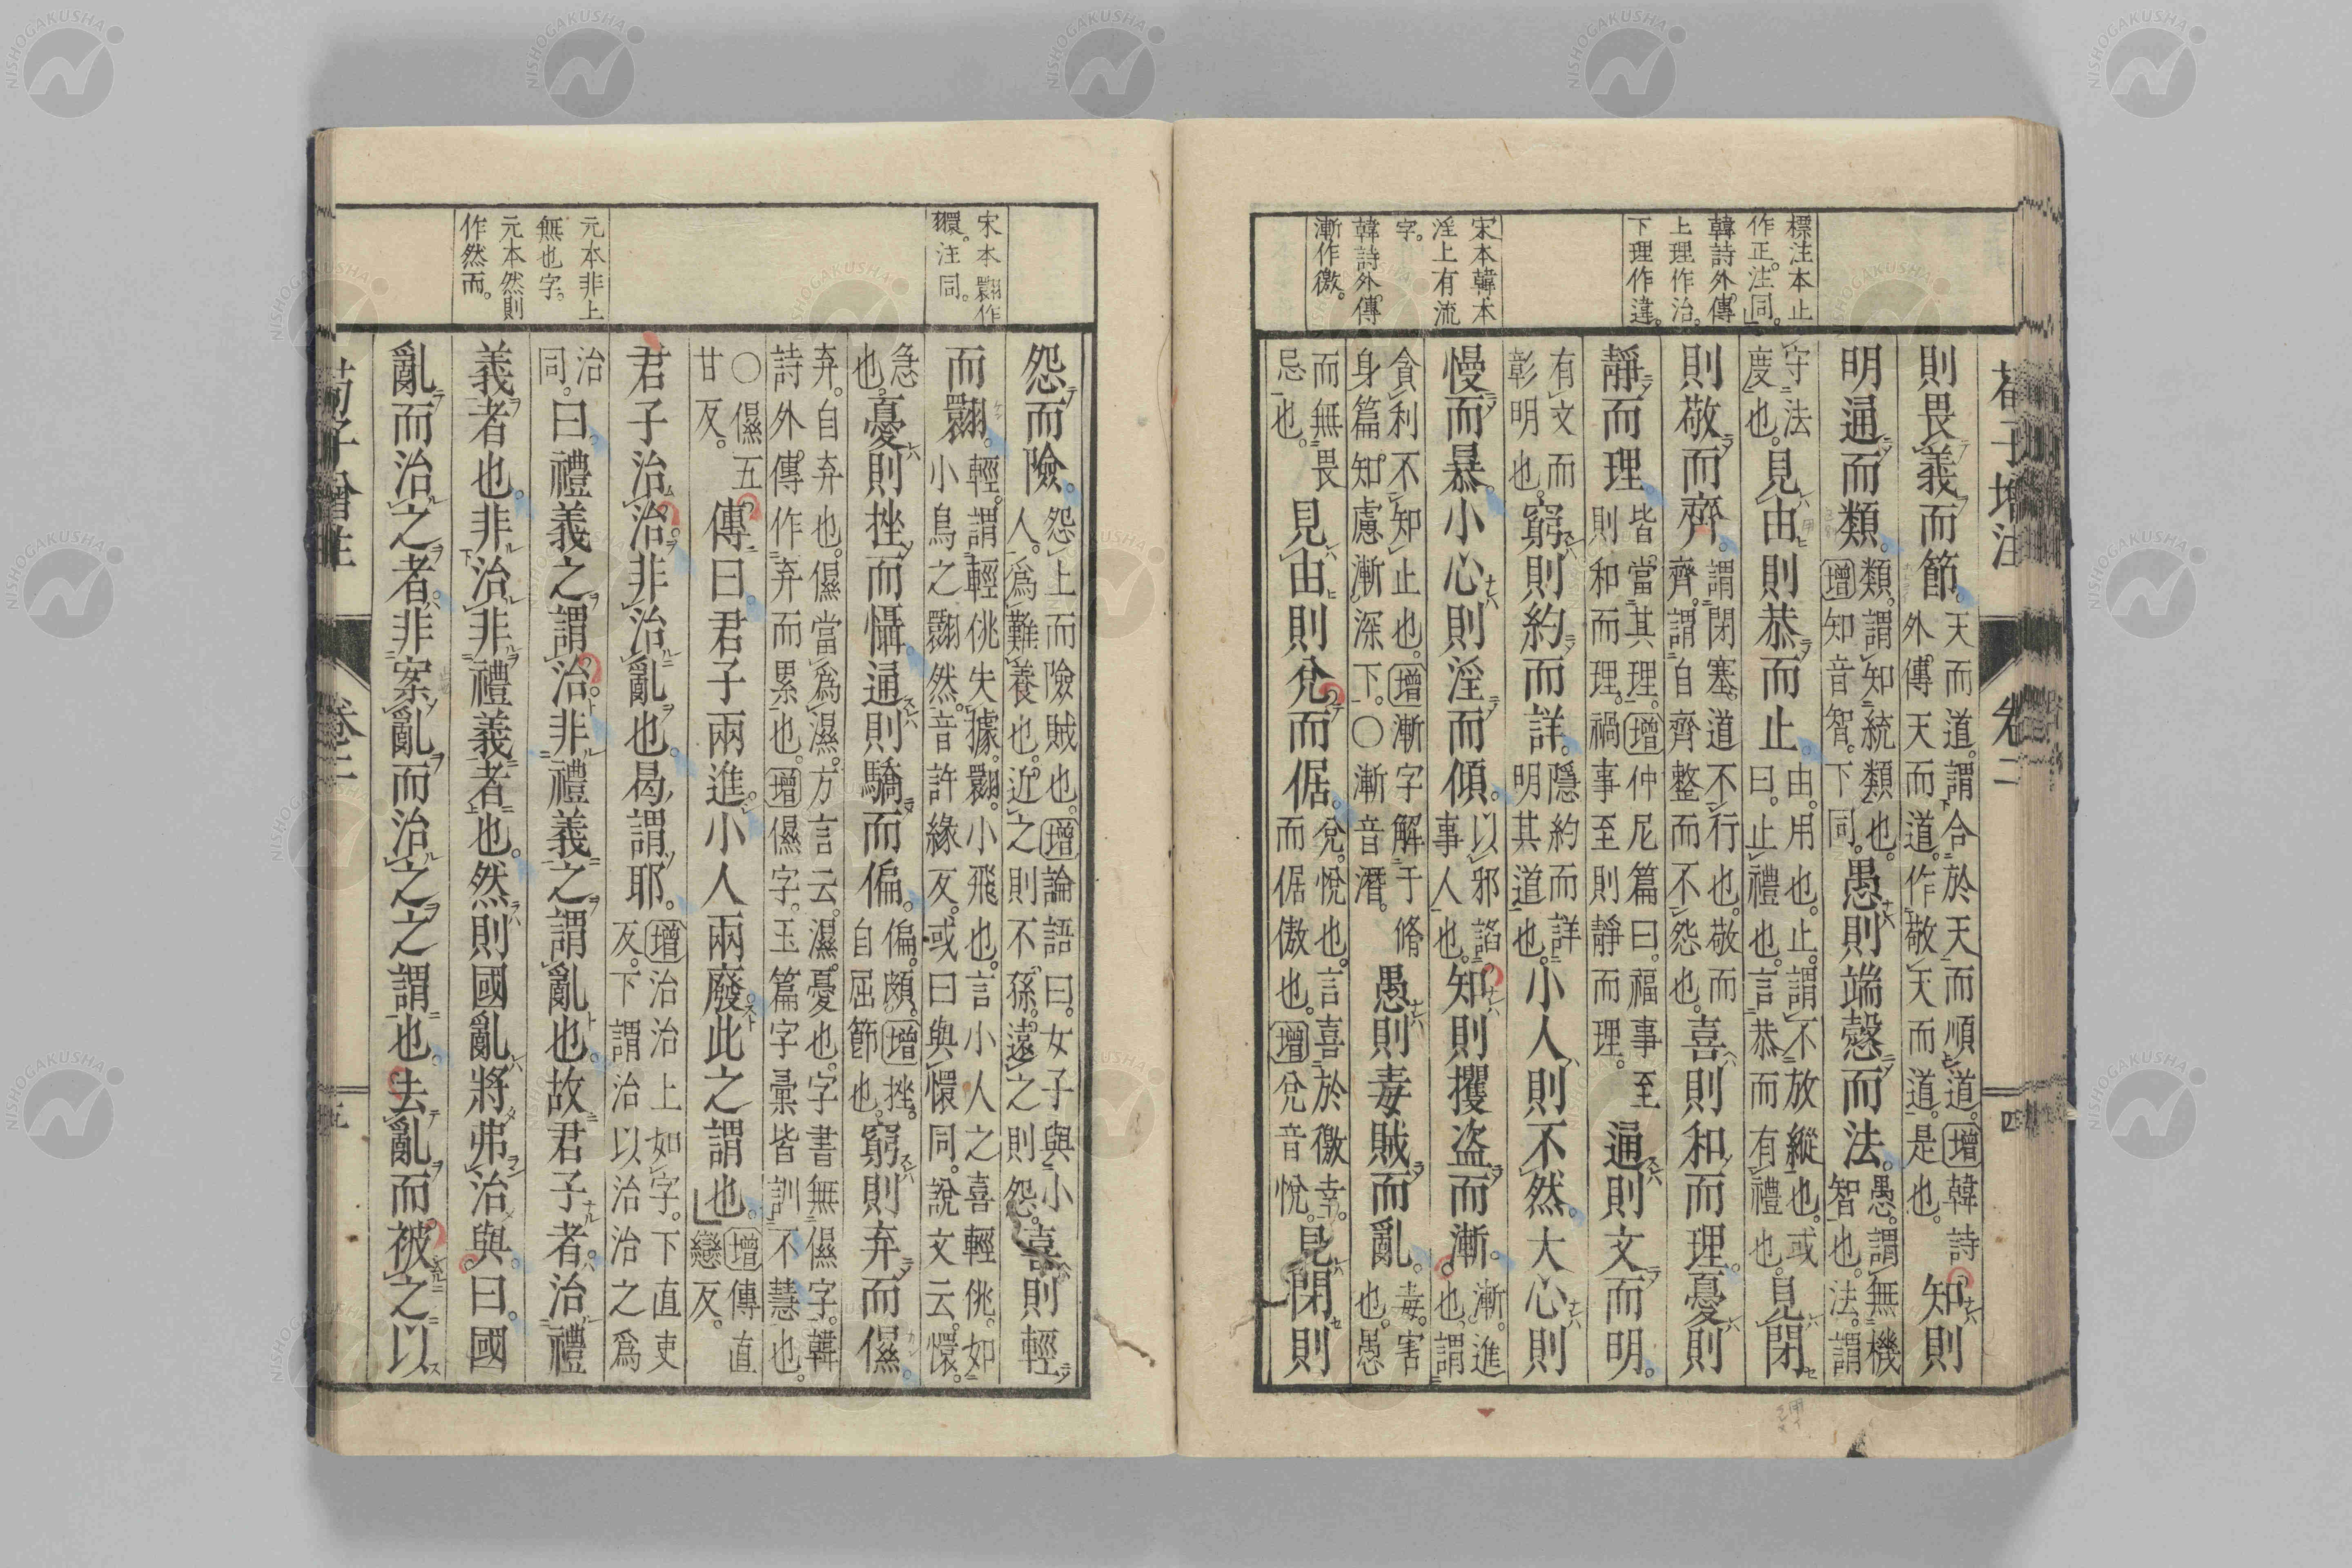 荀子增注 卷二 四
標注本止
作正。注同。
韓詩外傳
上理作治。
下理作違。
宋本韓本
淫上有流
字。
韓詩外傳
漸作徼。
則畏義而節。天而道。謂合於天而順道。增韓詩外傳天而道。作敬天而道。是也。知則
明通而類。類。謂知統類也。增知音智。下同。愚則端愨而法。愚。謂無機智也。法。謂
守法度也。見由則恭而止。由。用也。止。謂不放縱也。或曰。止禮也。言恭而有禮也。見閉
則敬而齊。謂閉塞。道不行也。敬而齊。謂自齊整而不怨也。喜則和而理。憂則
靜而理。皆當其理。增仲尼篇曰。福事至則和而理。禍事至則靜而理。通則文而明。
有文而彰明也。窮則約而詳。隱約而詳明其道也。小人則不然。大心則
慢而暴。小心則淫而傾。以邪諂事人也。知則攫盗而漸。漸。進也。謂
貪利不知止也。增漸字解于脩身篇知慮漸深下。○漸音潛。愚則毒賊而亂。毒。害也。愚
而無畏忌也。見由則兌而倨。兌。悅也。言喜於徼幸。而倨傲也。增兌音悅。見閉則
宋本翾作
㒓。注同。
元本非上
無也字。
元本然則
作然而。
怨而險。怨上而險賊也。增論語曰。女子與小人。爲難養也。近之則不孫。遠之則怨。喜則輕
而翾。輕。謂輕佻失據。翾。小飛也。言小人之喜輕佻。如小鳥之翾然。音許緣反。或曰與懁同。說文云。懁。
急也。憂則挫而懾。通則驕而偏。偏。頗。增挫。自屈節也。窮則弃而儑。
弃。自弃也。儑當爲濕。方言云。濕。憂也。字書無儑字。韓詩外傳作弃而累也。增儑字。玉篇字彙皆訓不慧也。
○儑五甘反。傳曰。君子兩進。小人兩廢。此之謂也。增傳直戀反。
君子治治。非治亂也。曷謂耶。增治治上如字。下直吏反。下謂治以治治之爲
治同。曰。禮義之謂治。非禮義之謂亂也。故君子者。治禮
義者也。非治非禮義者也。然則國亂將弗治與。曰。國
亂而治之者。非案亂而治之之謂也。去亂而被之以
荀子增注 卷二 五